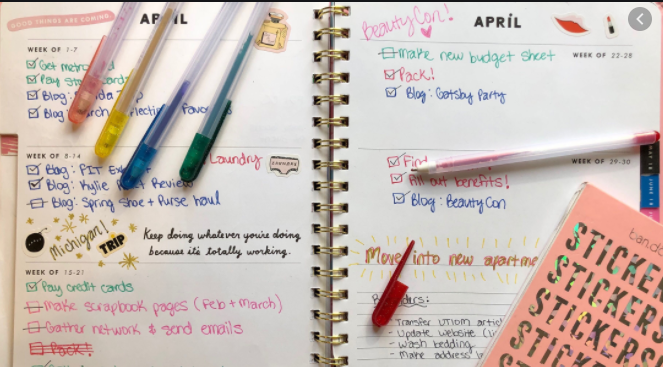 GOOD THINGS ARE COMING.
APRIL
WEEK OF 1-7
Get
Pay
Blog:
Blog:
WEEK OF 8-14
Laundry
Blog: PIT
Blog: Kylie Review
Blog: Spring Shoe + Purse haul
Michigan!
TRIP
Keep doing whatever you're doing
because it's totally working.
WEEK OF 15-21
Pay credit cards
Make scrapbook pages (Feb + March)
Gather network & send emails
Pack!
BeautyCon!
APRIL
WEEK OF 22-28
Make new budget sheet
Pack!
Blog: Gatsby Party
WEEK OF 29-30
Find
Fill out benefits!
Blog: BeautyCon
Move into new apartme
Transfer UTIOM artic
Update website (li
Wash bedding
Make address
STICKE
STICKERS
STICKERS
STICKERS
STICK